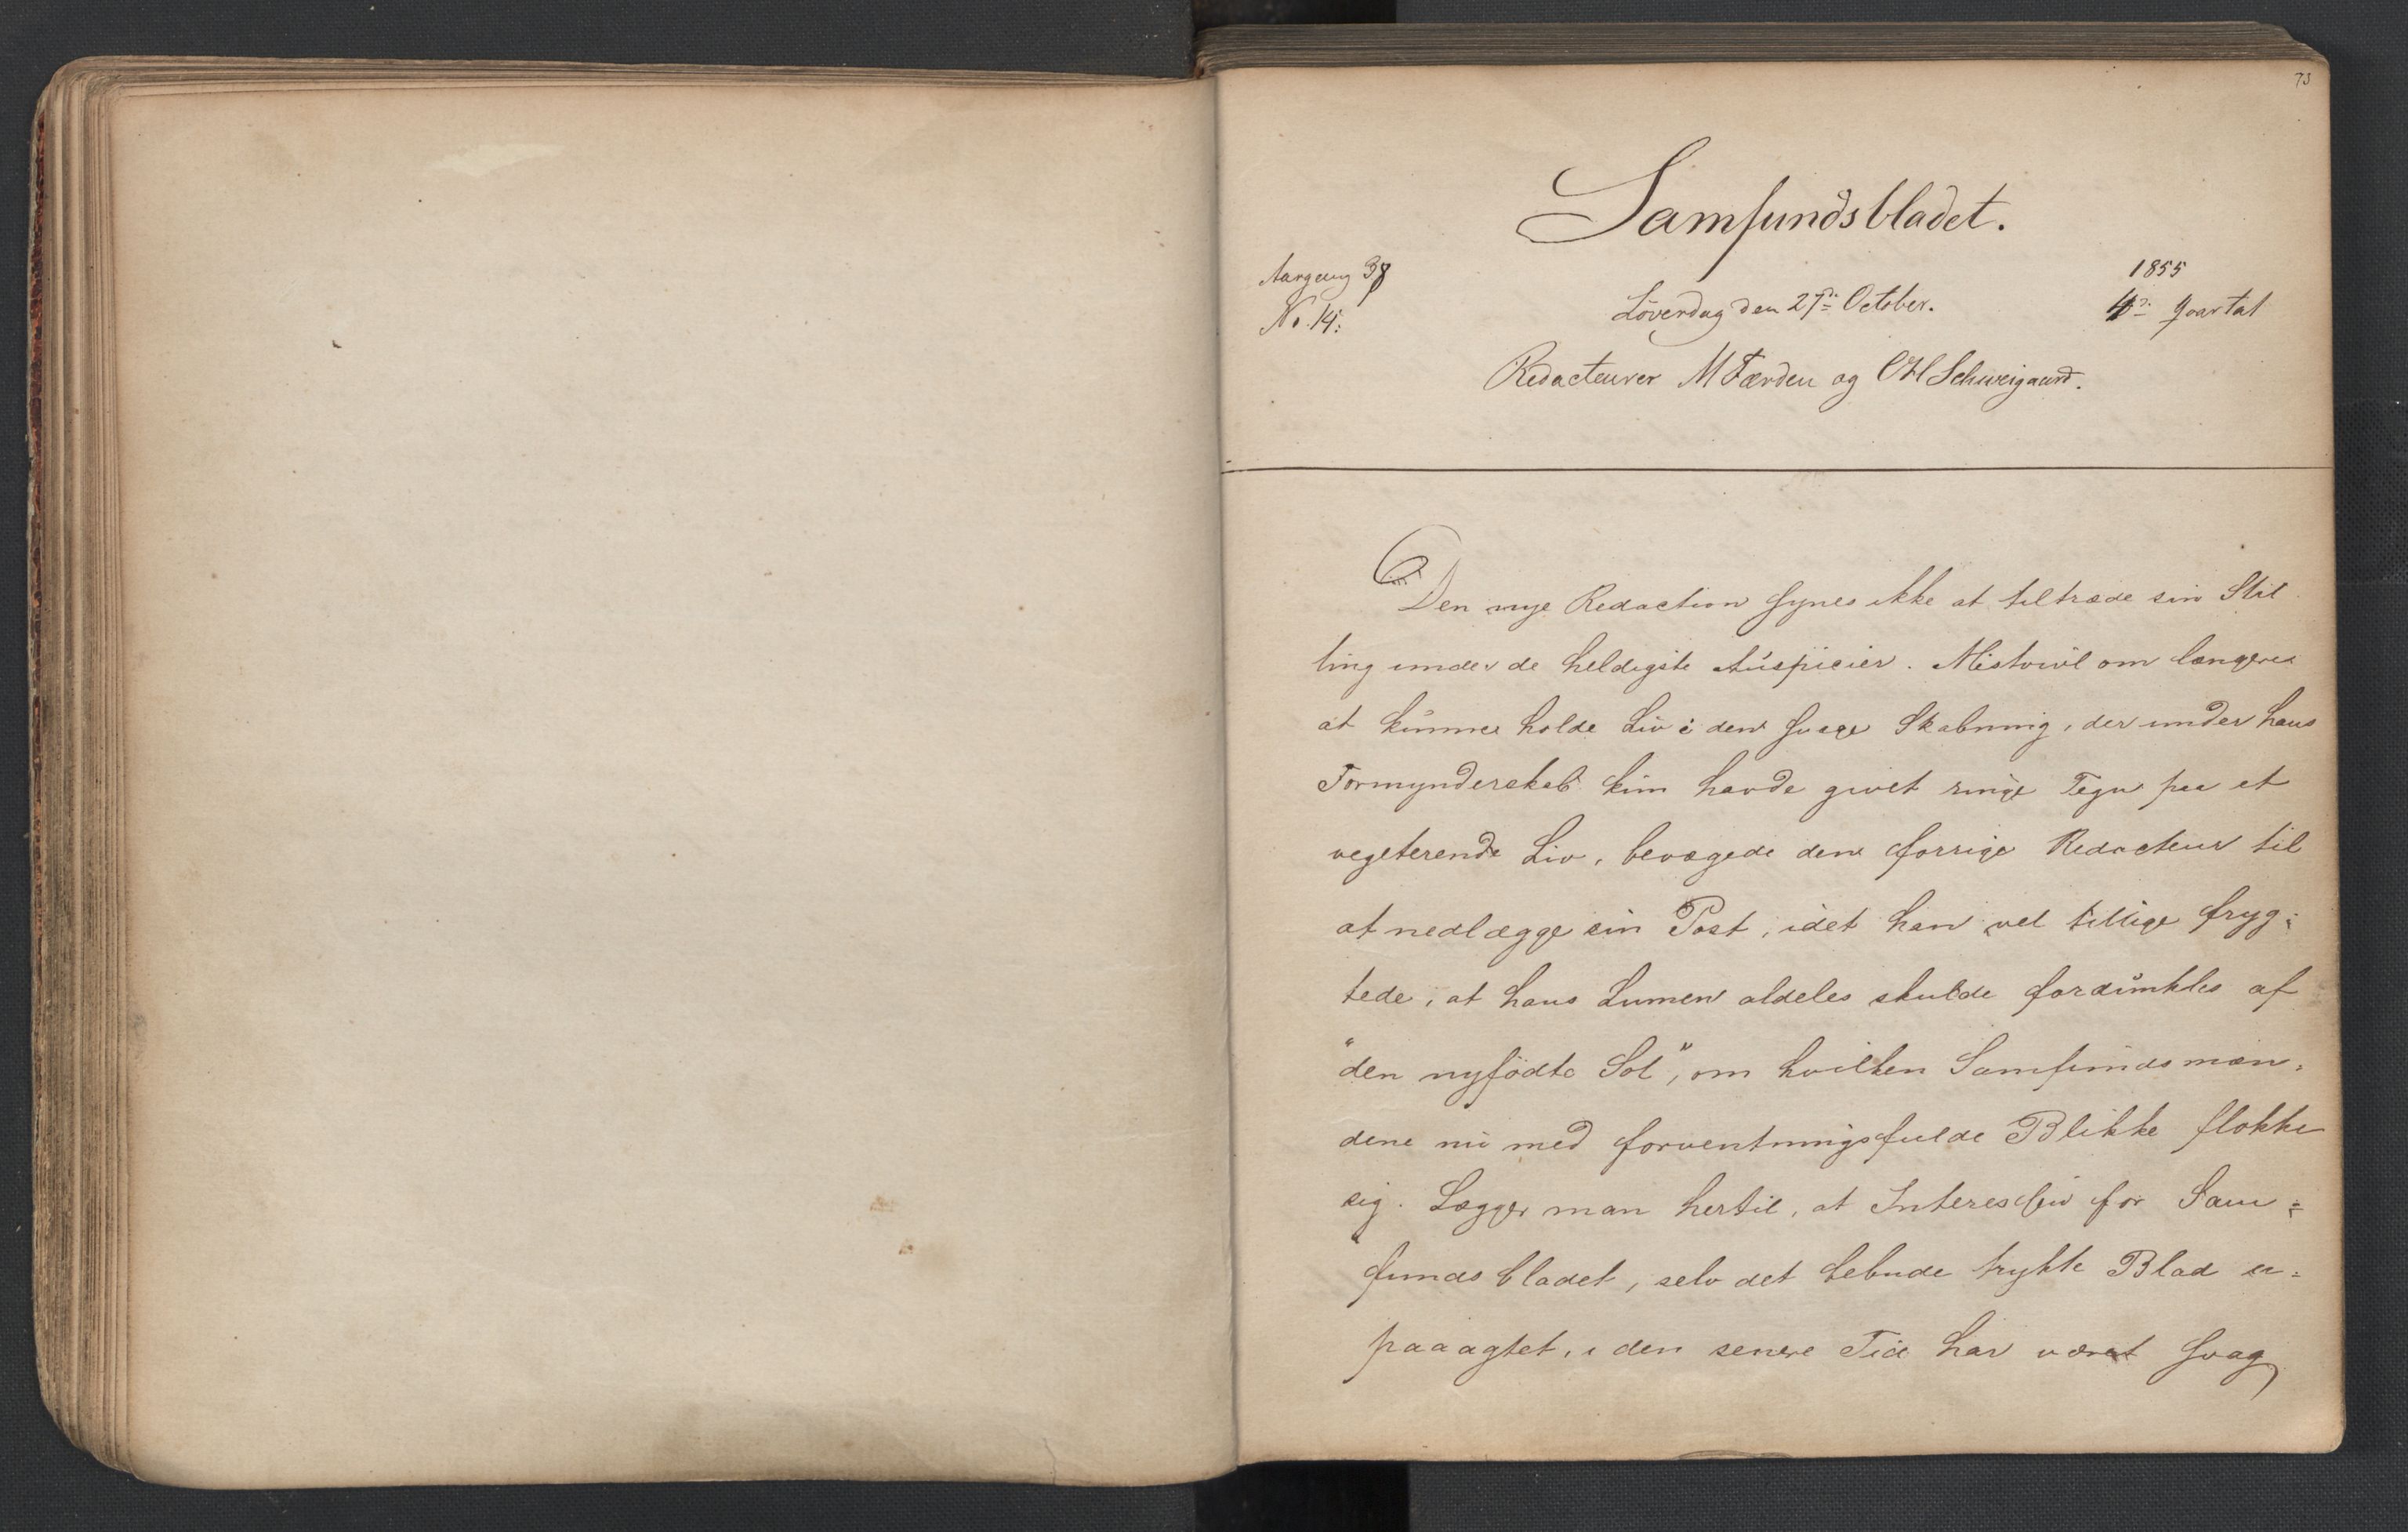 73
Samfundsbladet.
Aargang 38
No. 14.
Löverdag den 27de October.
1855
4de Qvartal
Redacteurer M Færden og CH Schweigaard.
Den nye Redaction synes ikke at tiltræde sin Stil
ling under de heldigste Auspicier. Mistvivl om længere
at kunne holde Liv i den svage Skabning, der under hans
Formynderskab kun havde givet ringe Tegn paa et
vegeterende Liv, bevægede den forrige Redacteur til
at nedlægge sin Post, idet han vel tillige fryg=
tede, at hans Lumen aldeles skulde fordunkles af
"den nyfödte Sol", om hvilken Samfundsmæn=
dene nu med forventningsfulde Blikke flokke
sig. Lægger man hertil, at Interessen for Sam=
fundsbladet, selv det bebudede trykte Blad u=
paaagtet, i den senere Tid har været svag